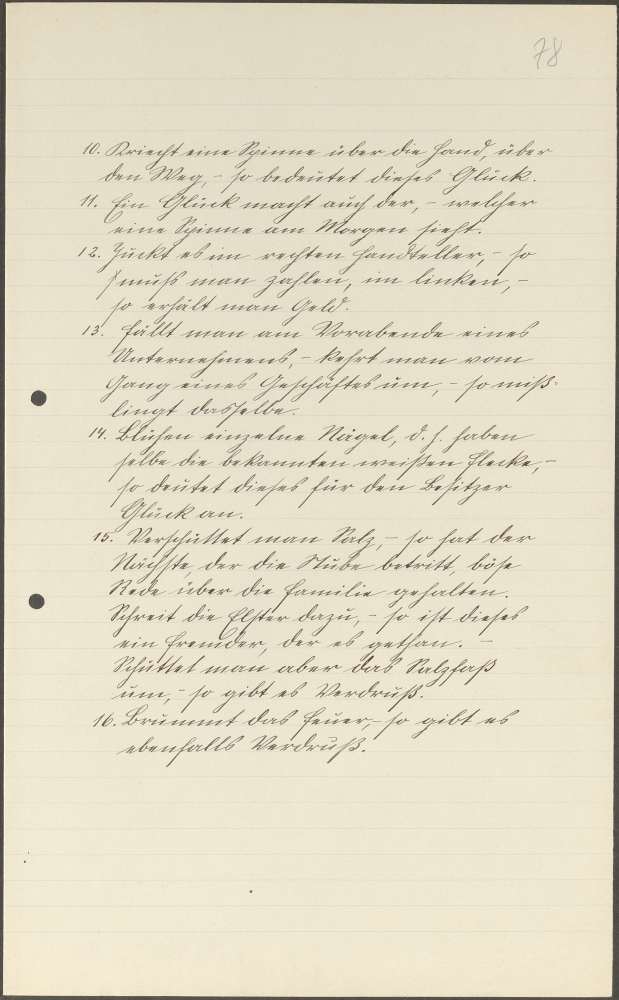 78
10. Kriecht eine Spinne über die Hand, über
den Weg, - so bedeutet dieses Glück.
11. Ein Glück macht auch der, - welcher
eine Spinne am Morgen sieht.
12. Juckt es im rechten Handteller, - so
muß man zahlen, im linken, -
so erhält man Geld.
13. Fällt man am Vorabende eines
Unternehmens, - kehrt man vom
Gang eines Geschäftes um, - so miß-
lingt dasselbe.
14. Blühen einzelne Nägel, d. h. haben
selbe die bekannten weißen Flecke, -
so deutet dieses für den Besitzer
Glück an.
15. Verschüttet man Salz, - so hat der
Nächste, der die Stube betritt, böse
Rede über die Familie gehalten.
Schreit die Elster dazu, - so ist dieses
ein Fremder, der es gethan. -
Schüttet man aber das Salzfaß
um, - so gibt es Verdruß.
16. Brummt das Feuer, - so gibt es
ebenfalls Verdruß.